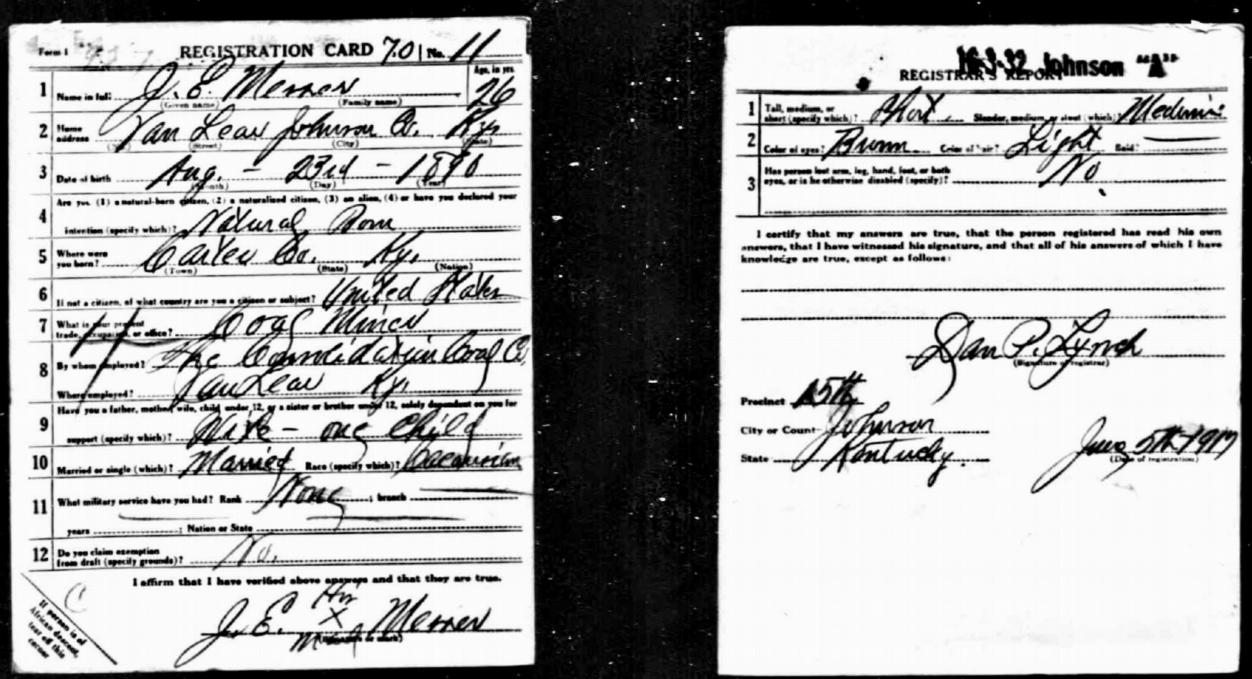 Form 1 REGISTRATION CARD 70 No. 11
1 Name in full J. E. Messer Age, in yrs. 26
(Given name) (Family name)
2 Home address Van Lear Johnson Co. Ky
(Street) (City) (State)
3 Date of birth Aug. - 23rd - 1890
(Month) (Day) (Year)
Are you (1) a natural-born citizen, (2) a naturalized citizen, (3) an alien, (4) or have you declared your
4 intention (specify which)? Natural Born
5 Where were you born? Carter Co. Ky.
(Town) (State) (Nation)
6 If not a citizen, of what country are you a citizen or subject? United States
7 What is your present trade, occupation, or office? Coal Miner
8 By whom employed? The Consolidation Coal Co.
Where employed? Van Lear Ky.
Have you a father, mother, wife, child under 12, or a sister or brother under 12, solely dependent on you for
9 support (specify which)? Wife - one child
10 Married or single (which)? Married Race (specify which)? Caucasian
11 What military service have you had? Rank None ; branch
years ; Nation or State
12 Do you claim exemption from draft (specify grounds)? No.
I affirm that I have verified above answers and that they are true.
His
J. E. X Messer
Mark
(Signature or mark)
If person is of
African descent,
tear off this
corner
16-3-32 Johnson "A"
REGISTRAR'S REPORT
1 Tall, medium, or short (specify which)? Short Slender, medium, or stout (which)? Medium
2 Color of eyes? Brown Color of hair? Light Bald?
3 Has person lost arm, leg, hand, foot, or both eyes, or is he otherwise disabled (specify)? No
I certify that my answers are true, that the person registered has read his own
answers, that I have witnessed his signature, and that all of his answers of which I have
knowledge are true, except as follows:
Dan P. Lynch
(Signature of registrar)
Precinct 15th
City or County Johnson
State Kentucky. June 5th 1917
(Date of registration)